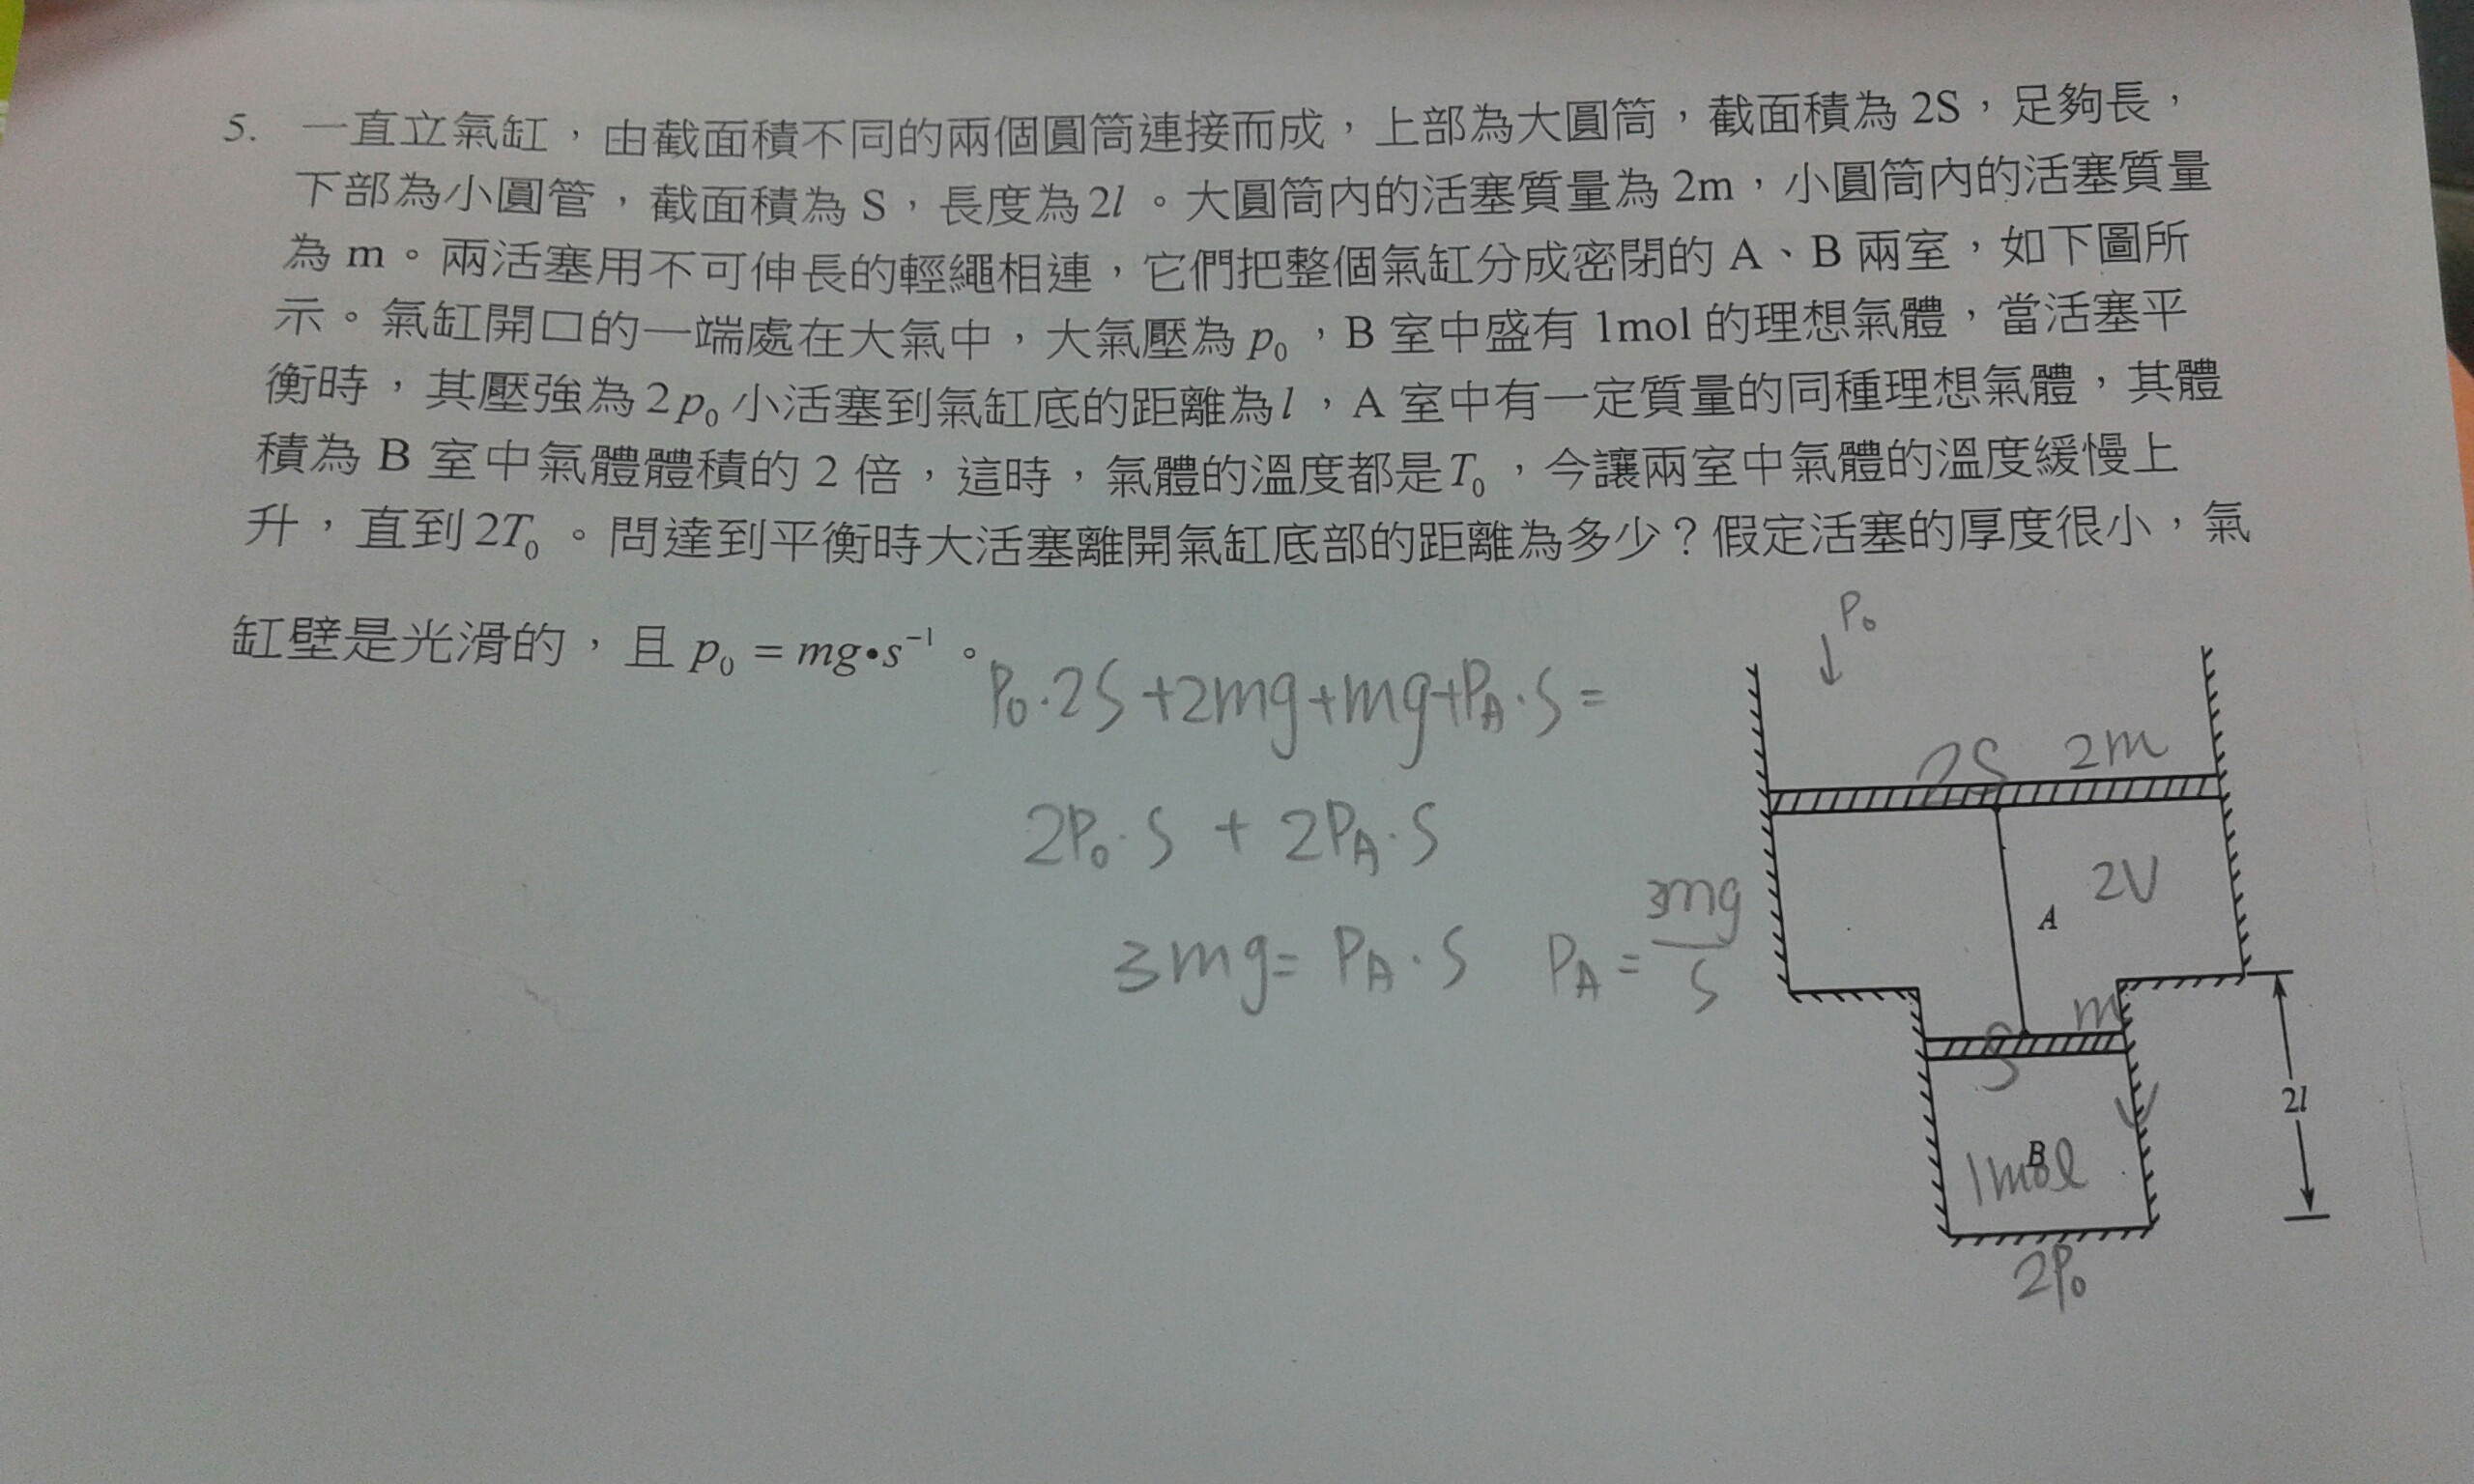 5. 一直立氣缸，由截面積不同的兩個圓筒連接而成，上部為大圓筒，截面積為 2S，足夠長，
下部為小圓管，截面積為 S，長度為 2l 。大圓筒內的活塞質量為 2m，小圓筒內的活塞質量
為 m。兩活塞用不可伸長的輕繩相連，它們把整個氣缸分成密閉的 A、B 兩室，如下圖所
示。氣缸開口的一端處在大氣中，大氣壓為 p₀，B 室中盛有 1mol 的理想氣體，當活塞平
衡時，其壓強為 2p₀ 小活塞到氣缸底的距離為 l，A 室中有一定質量的同種理想氣體，其體
積為 B 室中氣體體積的 2 倍，這時，氣體的溫度都是 T₀，今讓兩室中氣體的溫度緩慢上
升，直到 2T₀ 。問達到平衡時大活塞離開氣缸底部的距離為多少？假定活塞的厚度很小，氣
缸壁是光滑的，且 p₀ = mg•s⁻¹ 。
P₀·2S+2mg+mg+P_A·S=
2P₀·S + 2P_A·S
3mg= P_A·S P_A= 3mg/S
P₀
2S 2m
2V
A
m
S
V
2l
B
1mol
2P₀